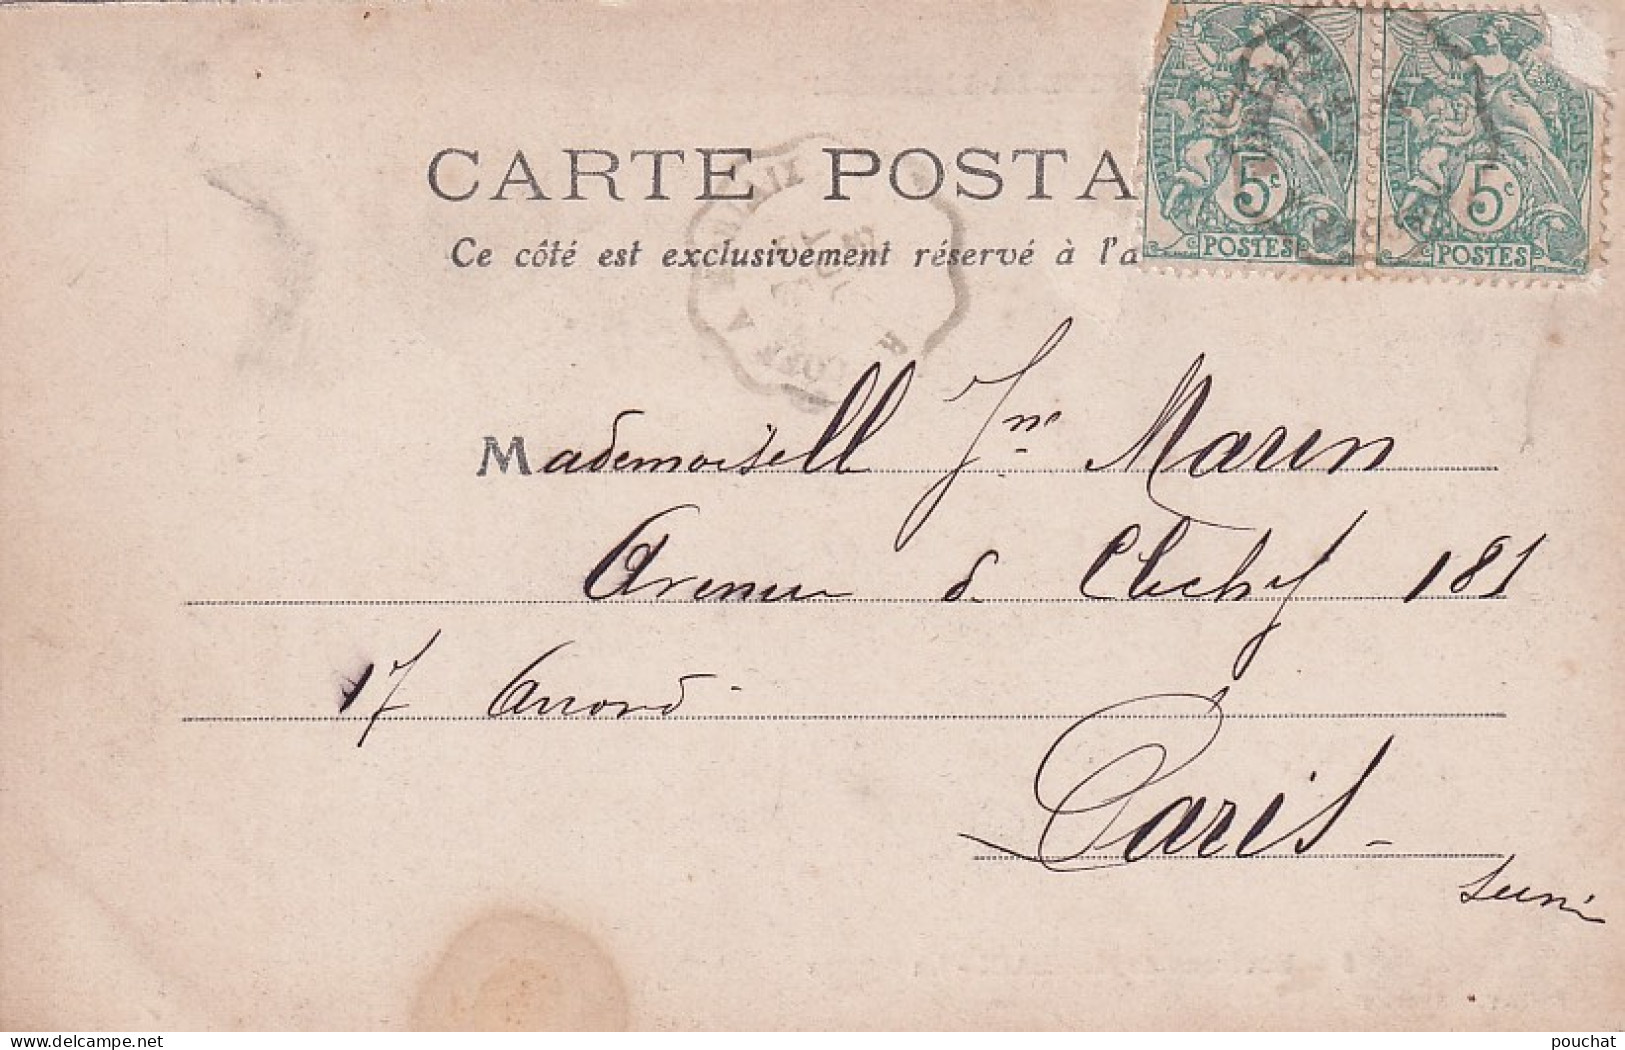 CARTE POSTA
Ce côté est exclusivement réservé à l'a
5c 5c
POSTES POSTES
Mademoisell Jne Marin
Avenue de Clichy 181
17 Arrond
Paris
Seine
delcampe.net
pouchat